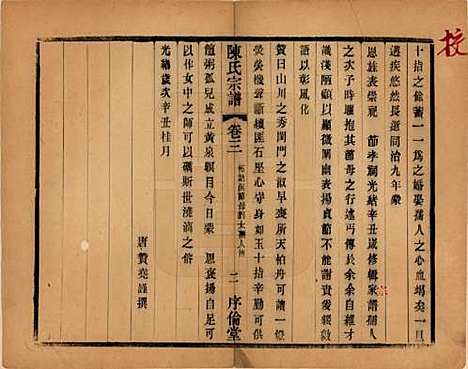 校
十指之餘蓄一一爲之婚娶孺人之心血竭矣一旦
遘疾悠然長逝同治九年蒙
恩旌表崇祀 節孝祠光緒辛丑歲修輯家譜嗣人
之次子時權抱其節母之行述丐傳於余余自維才
識淺陋顧以微闡幽表揚貞節不能無責爰爲綴數
語以彰風化
贊曰山川之秀閨門之淑早喪所天柏舟可讀一燈
熒熒機聲斷續匪石堅心守身如玉十指辛勤可供
饘粥孤兒成立黃泉瞑目今蒙 恩褒揚自茲可
以作女中之師可以礪斯世澆漓之俗
光緒歲次辛丑桂月
唐贊堯謹撰
陳氏宗譜
卷三
二 序倫堂